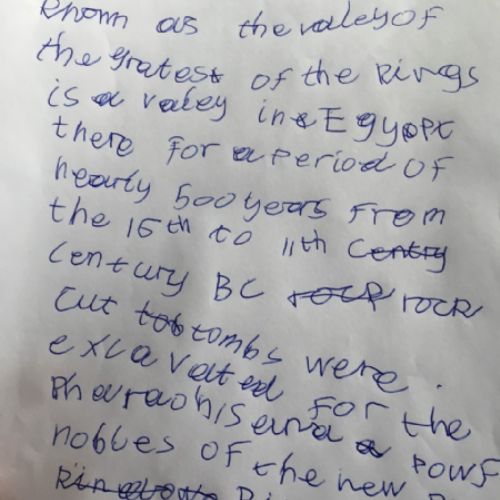 known as the valey of
the gratest of the kings
is a valey in Egypt
there for a period of
nearly 500 years from
the 16th to 11th Centry
Century BC rock rock
cut tob tombs were
excavated for the
pharaohs and a powf
nobles of the new